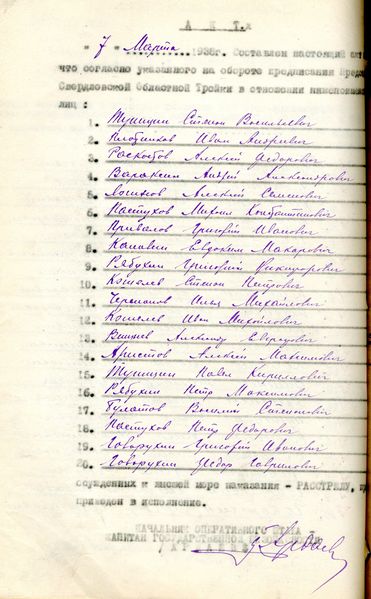 А К Т.
"7" Марта 1938г. Составлен настоящий акт
что согласно указанного на обороте предписания Предс
Свердловской Областной Тройки в отношении нижепоимен
лиц :
1. Тупицин Степан Васильевич
2. Плотников Иван Андреевич
3. Раскостов Алексей Федорович
4. Вараксин Андрей Александрович
5. Логинов Алексей Семенович
6. Пастухов Михаил Константинович
7. Привалов Григорий Иванович
8. Евдоким Макарович
9. Рябухин Григорий Никифорович
10. Кошелев Степан Петрович
11. Черепанов Илья Михайлович
12. Кошелев Иван Михайлович
13. Александр
14. Аристов Алексей Максимович
15. Тупицин Павел Кириллович
16. Рябухин Петр Максимович
17. Булатов Василий Степанович
18. Пастухов Петр Федорович
19. Говорухин Григорий Иванович
20. Говорухин Федор Гаврилович
осужденных к высшей мере наказания - РАССТРЕЛУ,
приведен в исполнение.
НАЧАЛЬНИК ОПЕРАТИВНОГО
КАПИТАН ГОСУДАРСТВЕННОЙ